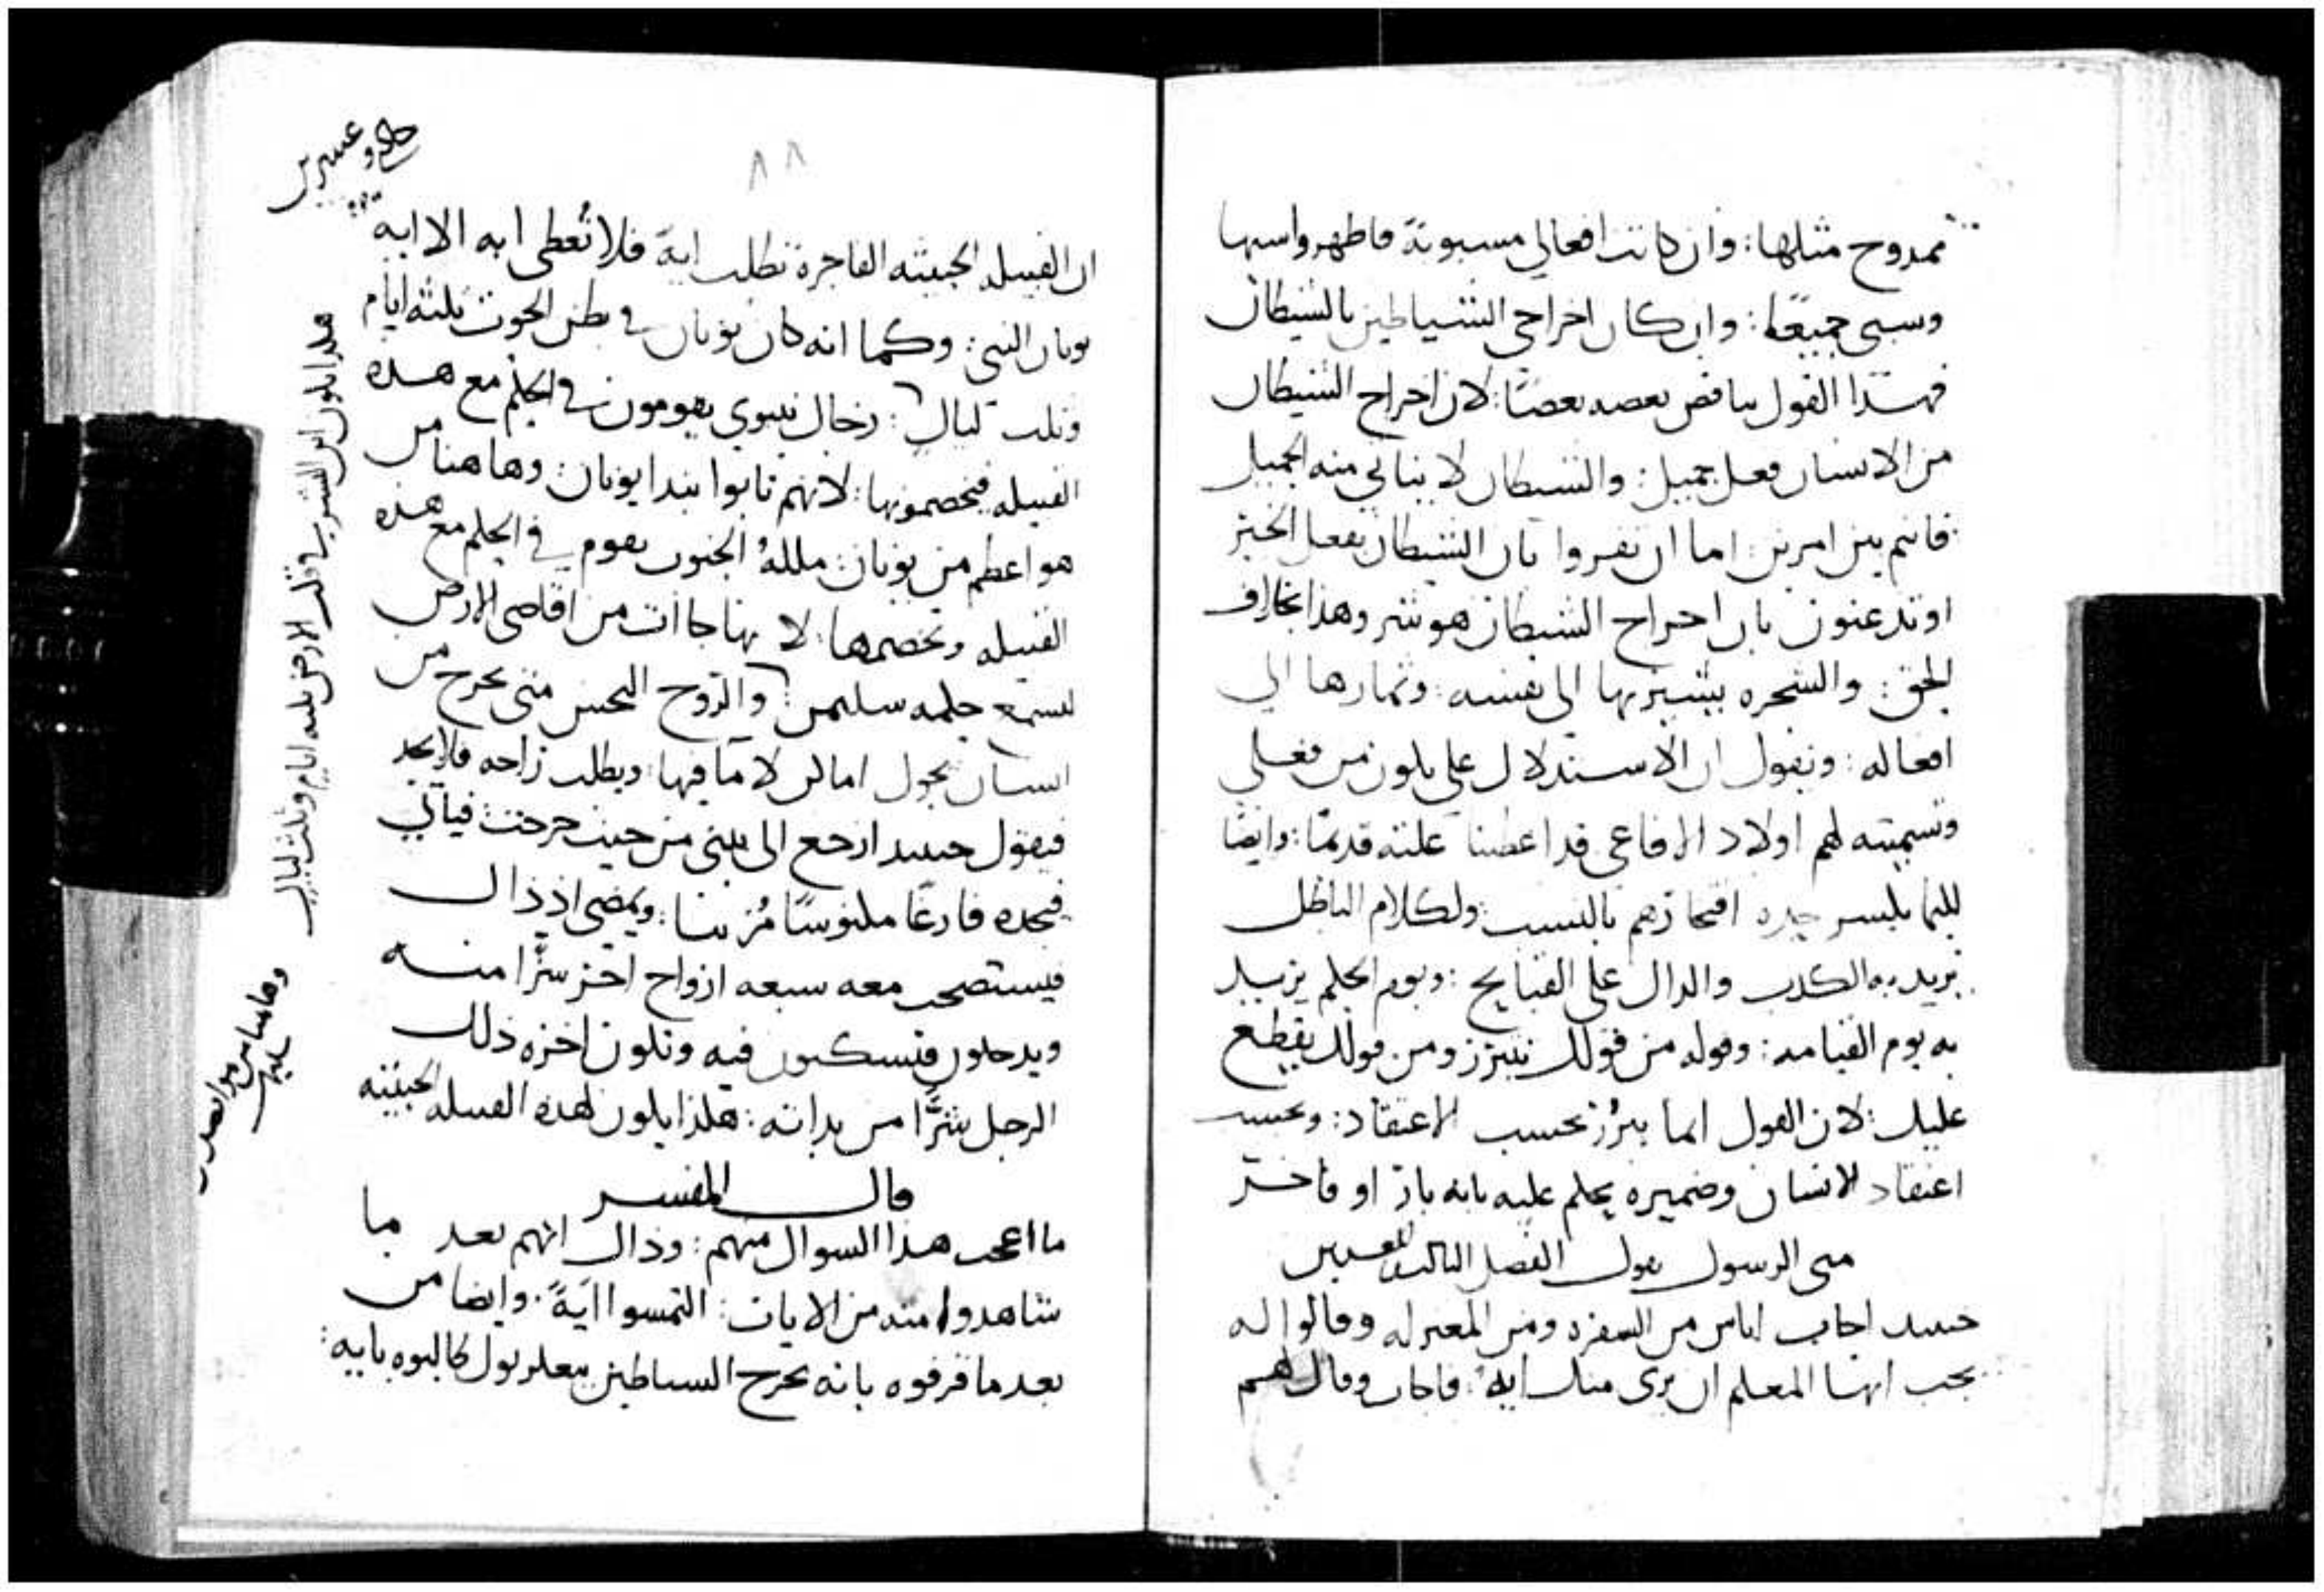 ممدوح مثلها: وان كانت افعالي مسبوبة فاظهروا سبها
وسبي جميعًا: وان كان اخراجي الشياطين بالشيطان
فهذا القول يناقض بعضه بعضًا: لان اخراج الشيطان
من الانسان فعل جميل: والشيطان لا يتاتي منه الجميل
فانتم بين امرين: اما ان تقروا بان الشيطان يفعل الخير
او تدعنون بان اخراج الشيطان هو شر وهذا بخلاف
الحق: والشجره يشير بها الى نفسه: وثمارها الى
افعاله: ونقول ان الاستدلال علي يكون من فعلي
وتسميته لهم اولاد الافاعي قد اعطينا علته قديمًا: وايضا
افتخارهم بالنسب: ولكلام الباطل
يريد به الكذب والدال على القبايح: ويوم الحكم يريد
به يوم القيامه: وقوله من قولك تتبرر ومن قولك يقطع
عليك: لان القول انما يبرُز بحسب الاعتقاد: وبحسب
اعتقاد الانسان وضميره يحكم عليه بانه بار او فاجر
متى الرسول يقول الفصل الثالث والعشرين
حينيد اجاب اناس من السفره ومن المعتزله وقالوا له
نحب ايها المعلم ان نرى منك ايةً: فاجاب وقال لهم
٨٨
حاد وعشرين
ان القبيله الخبيثه الفاجرة تطلب ايةً فلا تُعطى ايه الا ايه
يونان النبي: وكما انه كان يونان في بطن الحوت ثلثه ايام
وثلث ليال: رجال نينوي يقومون في الحكم مع هذه
القبيله فيخصمونها: لانهم تابوا بندا يونان: وهاهنا من
هو اعظم من يونان: ملكةُ الجنوب تقوم في الحكم مع هذه
القبيله وتخصمها: لانها جاات من اقاصي الارض
لتسمع حكمه سليمن: والروح النجس متى يخرج من
انسان يجول اماكن لا ما فيها: ويطلب راحه فلا يجد
فيقول حينيد ارجع الى بيتي من حيث خرجت فياتي
فيجده فارغًا مكنوسًا مُزينا: ويمضي اذ ذاك
فيستصحب معه سبعه ارواح اخر شرًّا منه
ويدخلون فيسكنون فيه وتكون اخره ذلك
الرجل شرًّا من بدايته: هكذا يكون لهذه القبيله الخبيثه
قال المفسر
ما اعجب هذا السوال منهم: وذاك انهم بعد ما
شاهدوا منه من الايات: التمسوا ايةً. وايضا من
بعد ما قرفوه بانه يخرج الشياطين ببعلزبول طالبوه بايه:
هكدا يكون ابن البشر في قلب الارض ثلثه ايام وثلث ليال
وهاهنا من هو افضل من سليمن